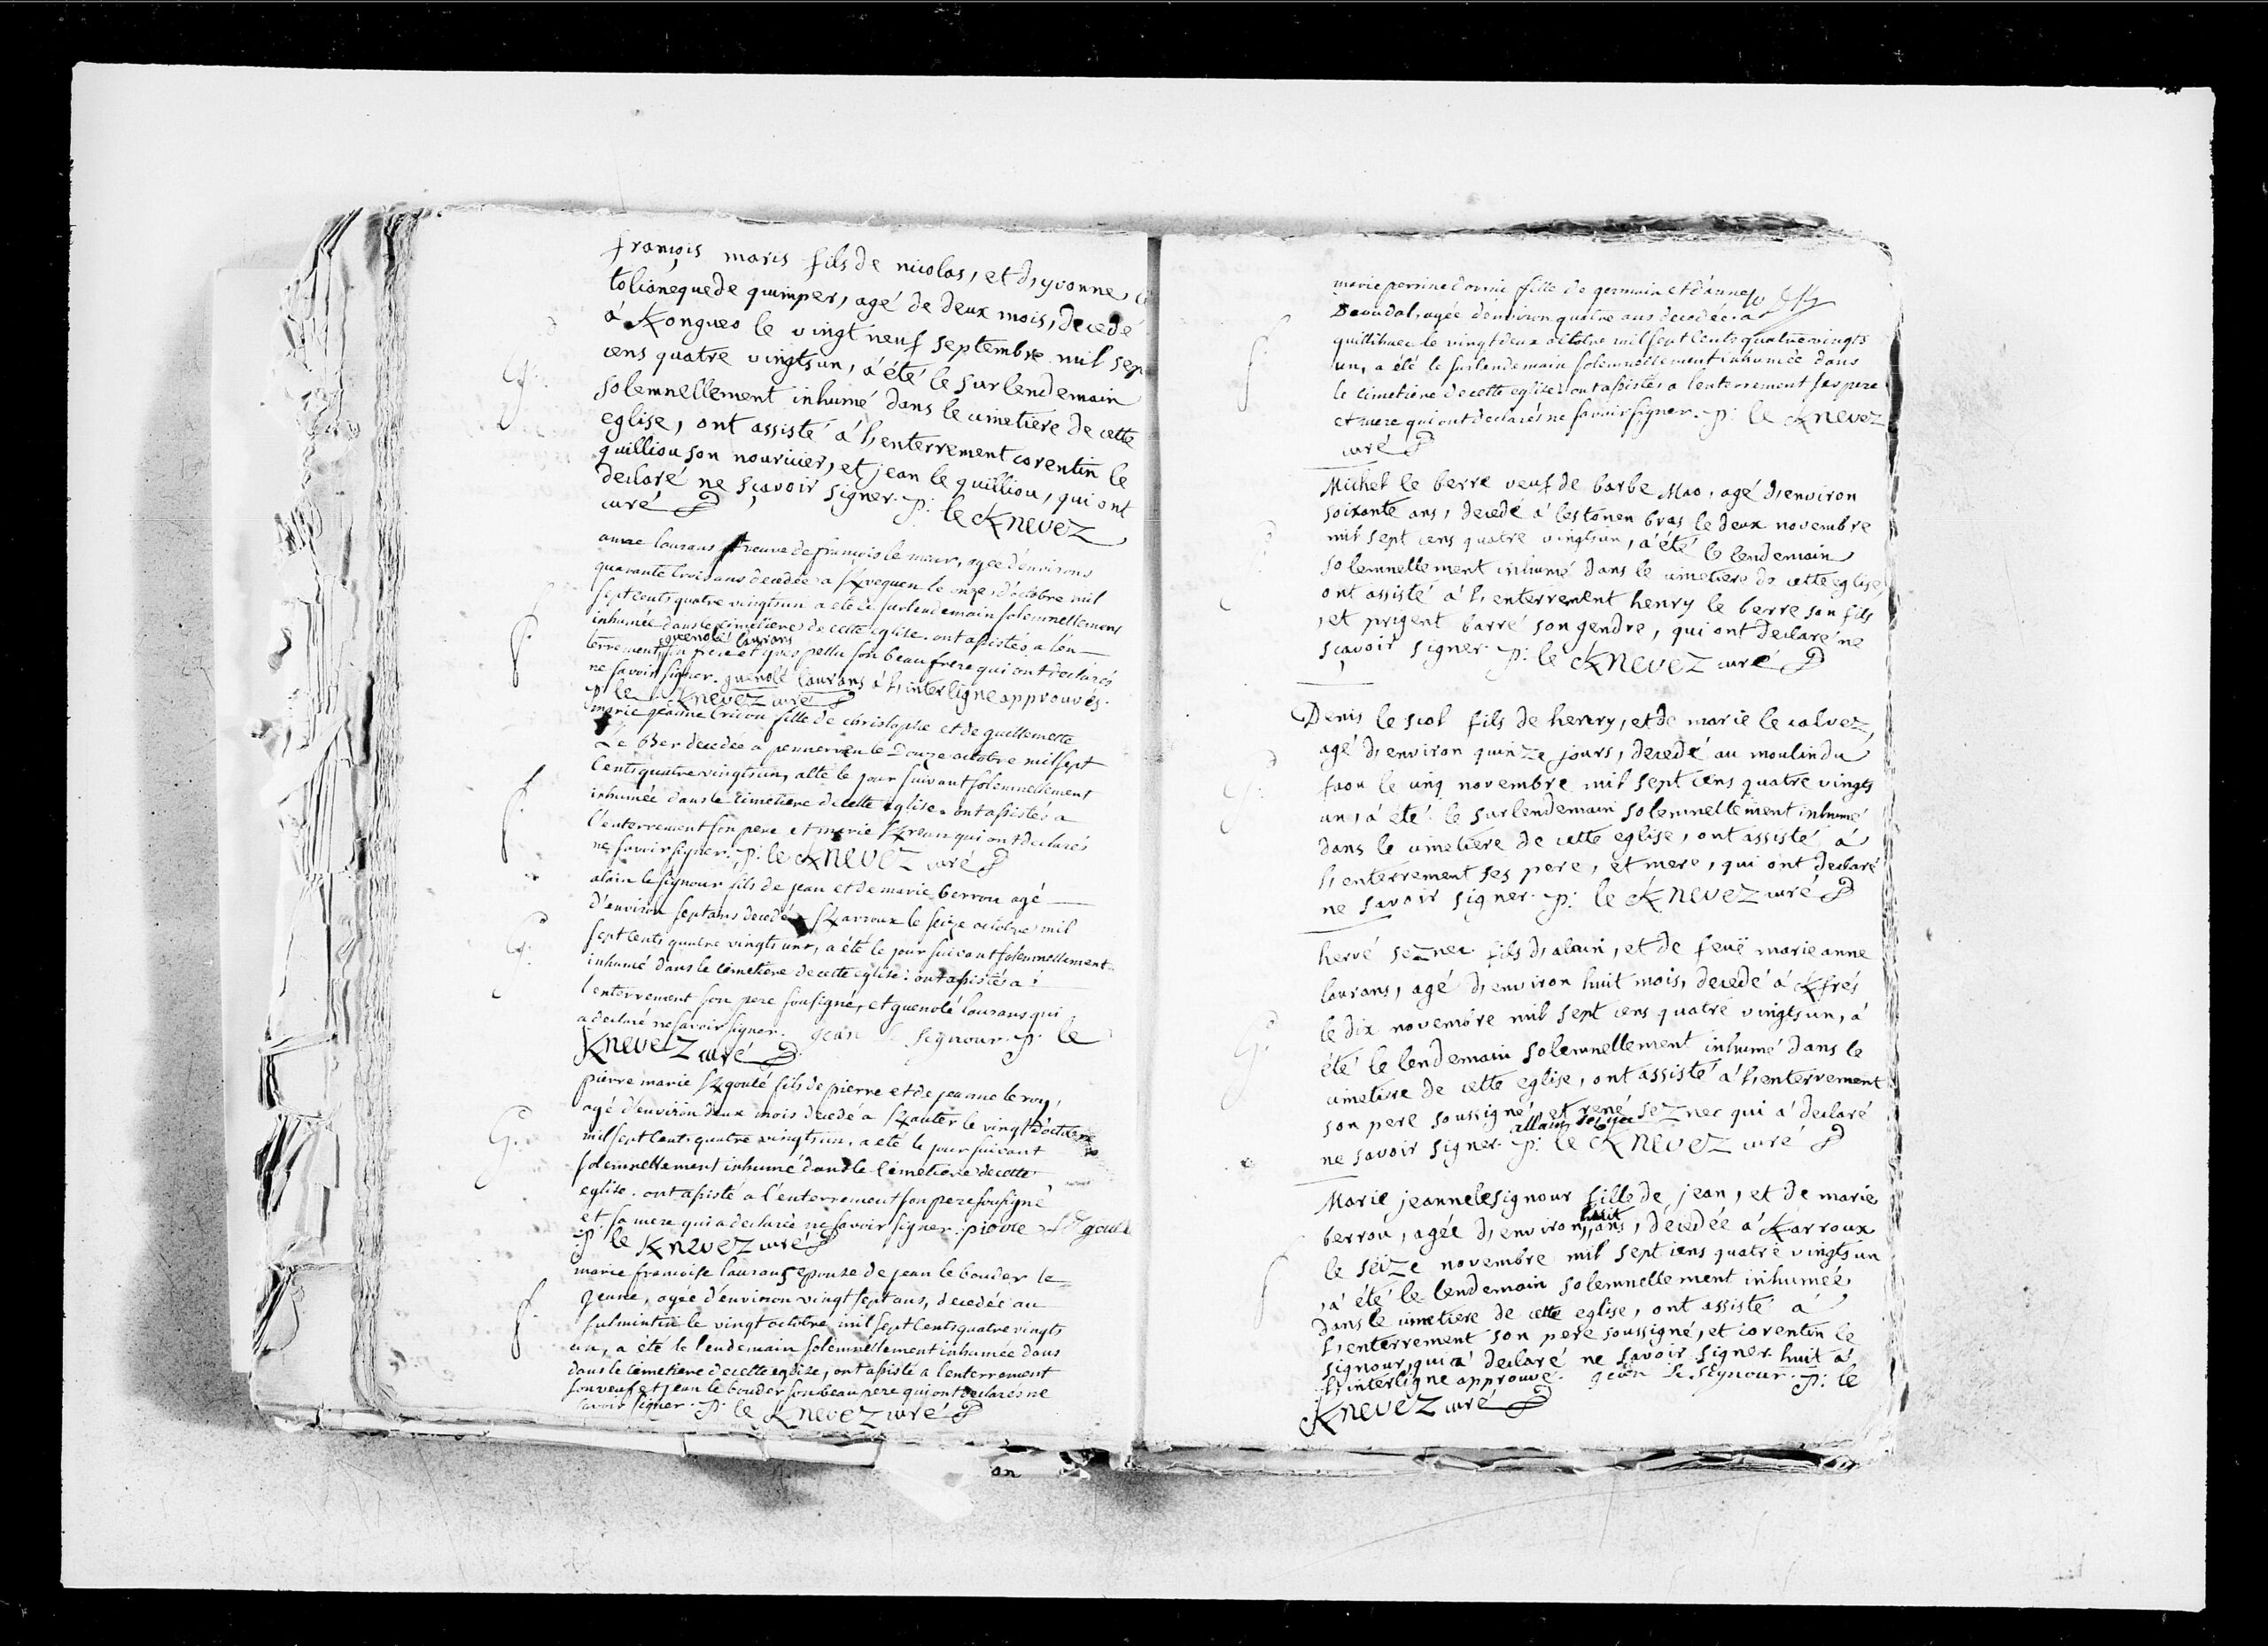 françois maris fils de nicolas, et d'yvonne
toliánequede quimper, agé de deux mois, decedé
á Kongueo le vingt neuf septembre mil sep
cens quatre vingtsun, á été le surlendemain
solemnellement inhumé dans le cimetiere de cette
eglise, ont assisté á l'enterrement corentin le
quilliou son nouricier, et jean le quilliou, qui ont
declaré ne sçavoir signer. p: le Knevez
curé
anne laurans veuve de françois le meur, agée d'environs
quarante trois ans decedée a Kveguen le onze d'octobre mil
sept cents quatre vingtsun a été le surlendemain solemnellement
inhumée dans le cimetiere de cette eglise. ont assistés a l'en-
guenolé laurans
terrement, son frere et yves pellu son beau frere qui ont declarés
ne savoir signer. guenolé laurans á l'interligne approuvés.
p: le Knevez curé
marie jeanne cricou fille de christophe et de guillemette
Le Ber decedée a pennerven le Douze octobre mil sept
Cents quatre vingtsun, a été le jour suivant solemnellement
inhumée dans le Cimetiere de cette eglise. ont assistés a
l'enterrement son pere et marie qui ont declarés
ne savoir signer. p: le Knevez curé
alain le signour fils de jean et de marie berrou agé
d'environ sept ans decedé a Karroux le seize octobre mil
sept cents quatre vingts un, a été le jour suivant solemnellement
inhumé dans le cimetiere de cette eglise: ont assistés a
l'enterrement son pere sousigné, et guenolé laurans qui
a declaré ne savoir signer. jean le signour. p: le
Knevez curé
pierre marie Kgoulé fils de pierre et de jeanne le roy,
agé d'environ deux mois decedé a Kauter le vingt d'octobre
mil sept cents quatre vingtsun, a été le jour suivant
solemnellement inhumé dans le Cimetiere de cette
eglise. ont assisté a l'enterrement son pere sousigné
et sa mere qui a declarée ne savoir signer. piere Kgoulé
p: le Knevez curé
marie françoise laurans epouse de jean le bouder le
jeune, agée d'environ vingt sept ans, decedée au
le vingt octobre mil sept Cents quatre vingts
un, a été le lendemain solemnellement inhumée dans
dans le Cimetiere de cette eglize, ont assisté a l'enterrement
son veuf et jean le bouder son beau pere qui ont declarés ne
savoir signer. p: le Knevez curé
marie perrine fille de germain et d'anne
Scoudal, agée d'environ quatre ans decedée a
quillihuec le vingt deux octobre mil sept Cents quatre vingts
un, a été le surlendemain solemnellement inhumée dans
le cimetiere de cette eglise: ont assistés a l'enterrement ses pere
et mere qui ont declarés ne savoir signer. p: le Knevez
curé
Michel le berre veuf de barbe Mao, agé d'environ
soixante ans, decedé á lestonen bras le deux novembre
mil sept cens quatre vingtsun, á été le lendemain
solemnellement inhumé dans le cimetiere de cette eglise
ont assisté á l'enterrement henry le berre son fils
, et prigent barré son gendre, qui ont declaré ne
sçavoir signer p: le Knevez curé
Denis le scol fils de henry, et de marie le calvez,
agé d'environ quinze jours, decedé au moulin du
faou le cinq novembre mil sept cens quatre vingts
un, á été le surlendemain solemnellement inhumé
dans le cimetiere de cette eglise, ont assisté á
l'enterrement ses pere, et mere, qui ont declaré
ne savoir signer. p: le Knevez curé
hervé seznec fils d'alain, et de feuë marie anne
laurans, agé d'environ huit mois, decedé á Kfrés
le dix novembre mil sept cens quatre vingtsun, á
été le lendemain solemnellement inhumé dans le
cimetiere de cette eglise, ont assisté á l'enterrement
son pere soussigné, et rené seznec qui á declaré
allain seznec
ne savoir signer. p: le Knevez curé
Marie jeanne le signour fille de jean, et de marie
huit
berrou, agée d'environ ans, decedée á Karroux
le seize novembre mil sept cens quatre vingtsun
, á été le lendemain solemnellement inhumée
dans le cimetiere de cette eglise, ont assisté á
l'enterrement son pere soussigné, et corentin le
signour, qui á declaré ne savoir signer. huit á
l'interligne approuvé. jean le signour. p: le
Knevez curé